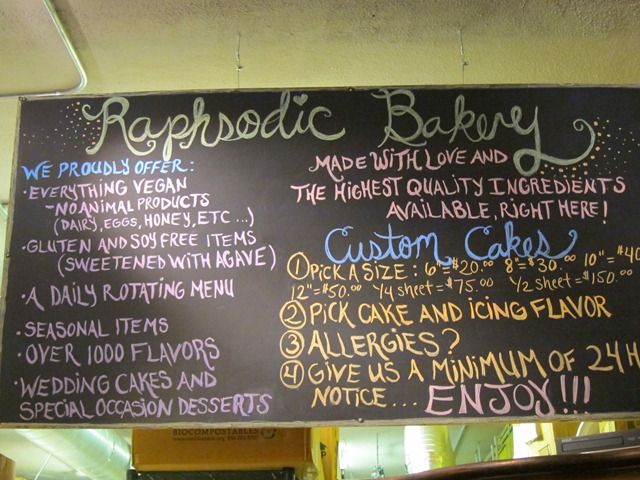 Raphsodic Bakery
WE PROUDLY OFFER:
· EVERYTHING VEGAN
- NO ANIMAL PRODUCTS
(DAIRY, EGGS, HONEY, ETC...)
· GLUTEN AND SOY FREE ITEMS
(SWEETENED WITH AGAVE)
· A DAILY ROTATING MENU
· SEASONAL ITEMS
· OVER 1000 FLAVORS
· WEDDING CAKES AND
SPECIAL OCCASION DESSERTS
MADE WITH LOVE AND
THE HIGHEST QUALITY INGREDIENTS
AVAILABLE, RIGHT HERE!
Custom Cakes
① PICK A SIZE: 6"=$20.00 8"=$30.00 10"=$40
12"=$50.00 1/4 sheet=$75.00 1/2 sheet=$150.00
② PICK CAKE AND ICING FLAVOR
③ ALLERGIES?
④ GIVE US A MINIMUM OF 24H
NOTICE.... ENJOY!!!
BIOCOMPOSTABLES